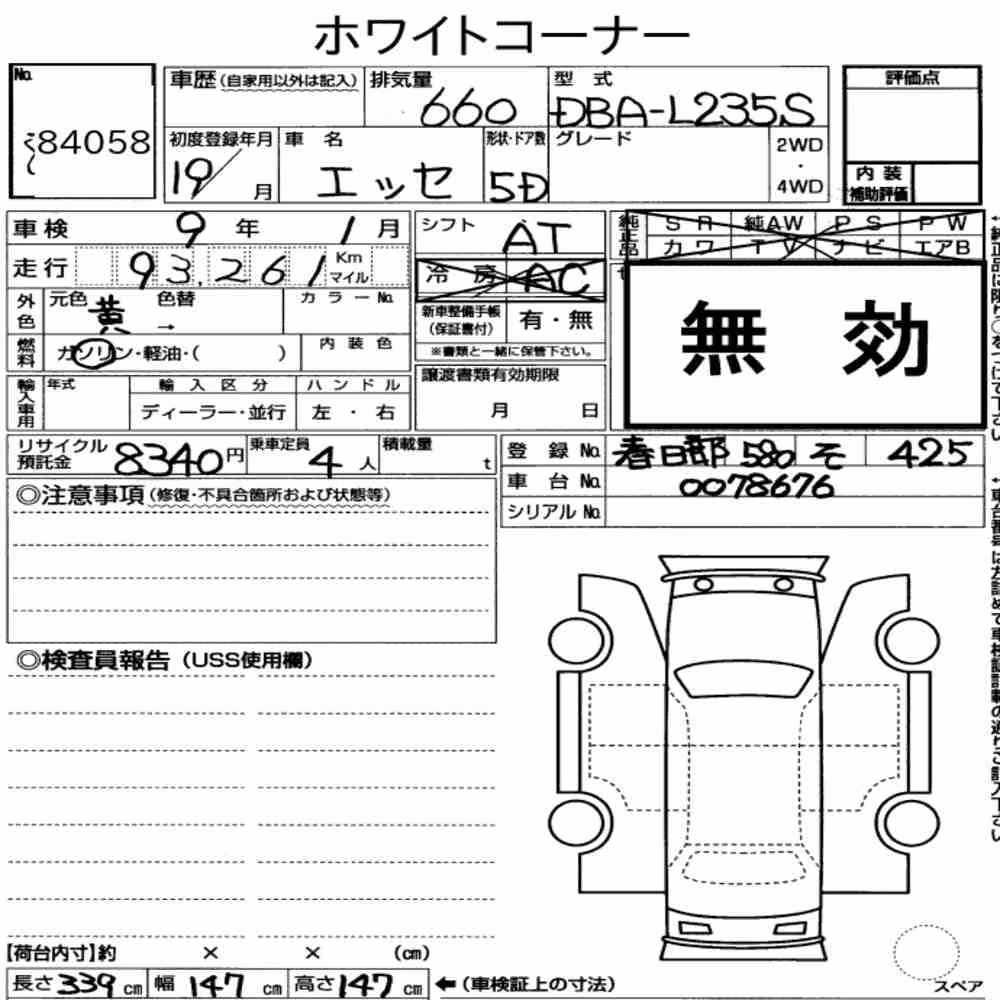 ホワイトコーナー
No. 84058
車歴(自家用以外は記入) 排気量 660 型式 DBA-L235S
評価点
初度登録年月 19/ 月 車名 エッセ 形状・ドア数 5D グレード 2WD・4WD
内装補助評価
車検 9年 1月 シフト AT
純正品 SR 純AW PS PW
カワ TV ナビ エアB
走行 93,261 Km マイル
冷房 AC
外色 元色 黄 色替 → カラーNo.
新車整備手帳(保証書付) 有・無
※書類と一緒に保管下さい。
無効
燃料 ガソリン・軽油・( ) 内装色
譲渡書類有効期限
月 日
輸入車用 年式 輸入区分 ハンドル
ディーラー・並行 左・右
リサイクル預託金 8340円 乗車定員 4人 積載量 t
登録No. 春日部 580 そ 425
車台No. 0078676
シリアルNo.
◎注意事項(修復・不具合箇所および状態等)
◎検査員報告(USS使用欄)
【荷台内寸】約 × × (cm)
長さ339cm 幅147cm 高さ147cm ←(車検証上の寸法)
スペア